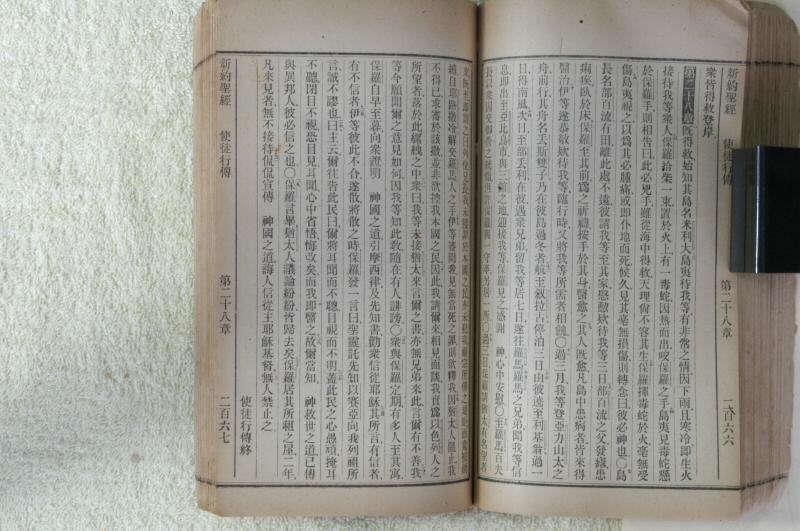 新約聖經 使徒行傳 第二十八章 二百六六
衆皆得救登岸
第二十八章 既得救始知其島名米利大島夷待我等有非常之情因下雨且寒冷卽生火
接待我等衆人保羅拾柴一束置於火上有一毒蛇因熱而出咬保羅之手島夷見毒蛇懸
於保羅手則相告曰此必兇手雖從海中得救天理尙不容其生保羅揮毒蛇於火毫無受
傷島夷視之以爲其必腫痛或卽仆地而死候久見其毫無損傷則轉念曰彼必神也〇島
長名部百流有田離此處不遠彼請我等至其家慇懃欵待我等三日部百流之父發瘧患
痢疾臥於床保羅至其前爲之祈禱按手於其身醫愈之其人旣愈凡島中患病者皆來得
醫治伊等遂恭敬欵待我等臨行時又將我等所需者相餽〇過三月我等登亞力山太之
舟前行其舟名丟斯雙子乃在彼島過冬者航至叙拉古停泊三日由彼遶至利基翁過一
日得南風次日至部丟利在彼遇衆兄弟留我等居七日遂往羅馬羅馬之兄弟聞我等信
息卽出至亞比烏市與三館之地迎接我等保羅見之感謝 神心中安慰〇至羅馬百夫
長以衆囚交御營之統領但許保羅與一守卒另居一所〇過三日保羅請猶太有名望者
不得已求審於該撒並非欲控我本國之民因此我請爾來相見面談我實爲以色列人之
所望者落於此縲絏之中衆曰我等未接猶太來言爾之書亦無兄弟來此言爾有不善我
等今願聞爾之意見如何因我等知此敎隨在有人誹謗〇衆與保羅定期有多人至其寓
保羅自早至暮向衆證明 神國之道引摩西律及先知書勸衆信從耶穌其所言有信者
有不信者伊等彼此不合遂散將散之時保羅發一言曰聖靈託先知以賽亞向我列祖所
言誠不謬也曰主云爾往告此民曰爾將耳聞而不聰目視而不明蓋此民之心愚頑掩耳
不聽閉目不視恐目見耳聞心中省悟悔改矣而我卽醫之故爾當知 神救世之道已傳
與異邦人彼必信之也〇保羅言畢猶太人議論紛紛皆歸去矣保羅居其所租之屋二年
凡來見者無不接待侃侃宣傳 神國之道誨人信從主耶穌基督無人禁止之
使徒行傳終
新約聖經 使徒行傳 第二十八章 二百六七